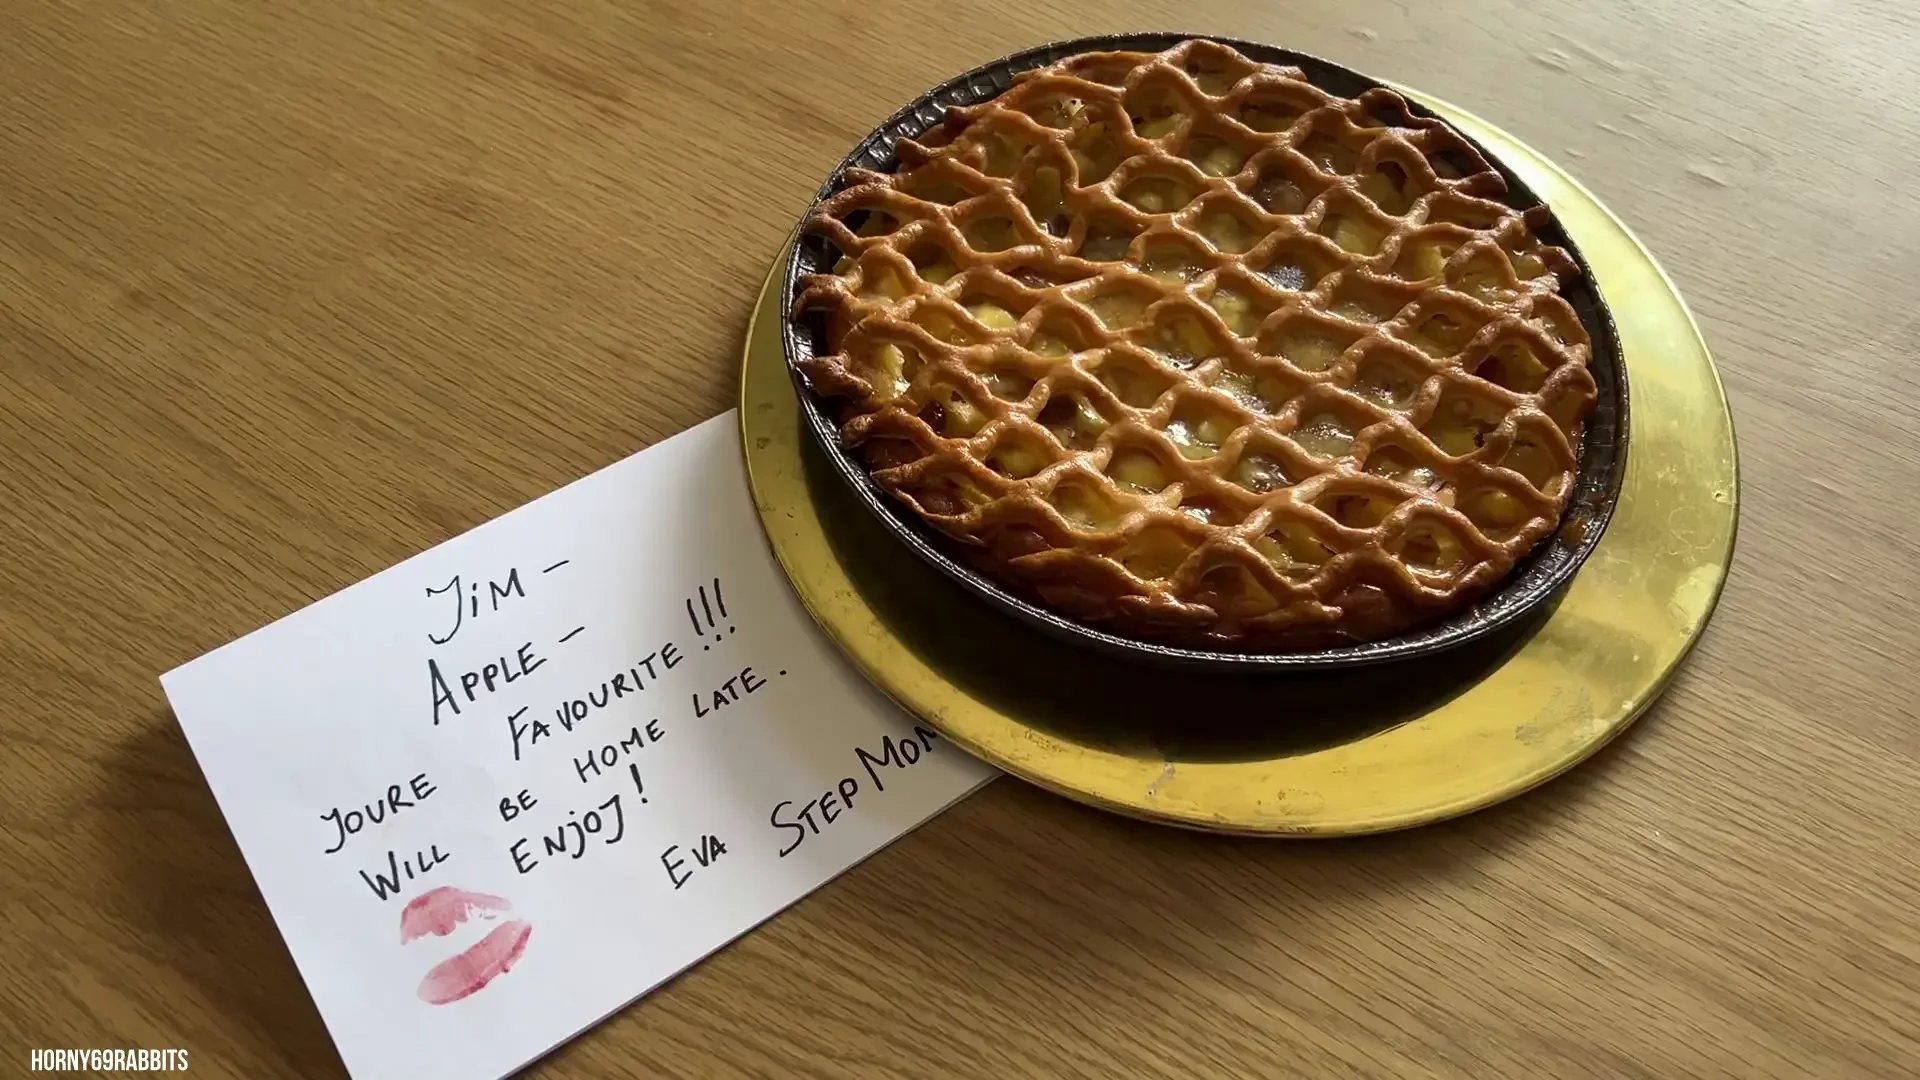 JiM -
APPLE -
YOURE FAVOURITE !!!
WILL BE HOME LATE.
ENJOY!
EVA STEP MOM
HORNY69RABBITS